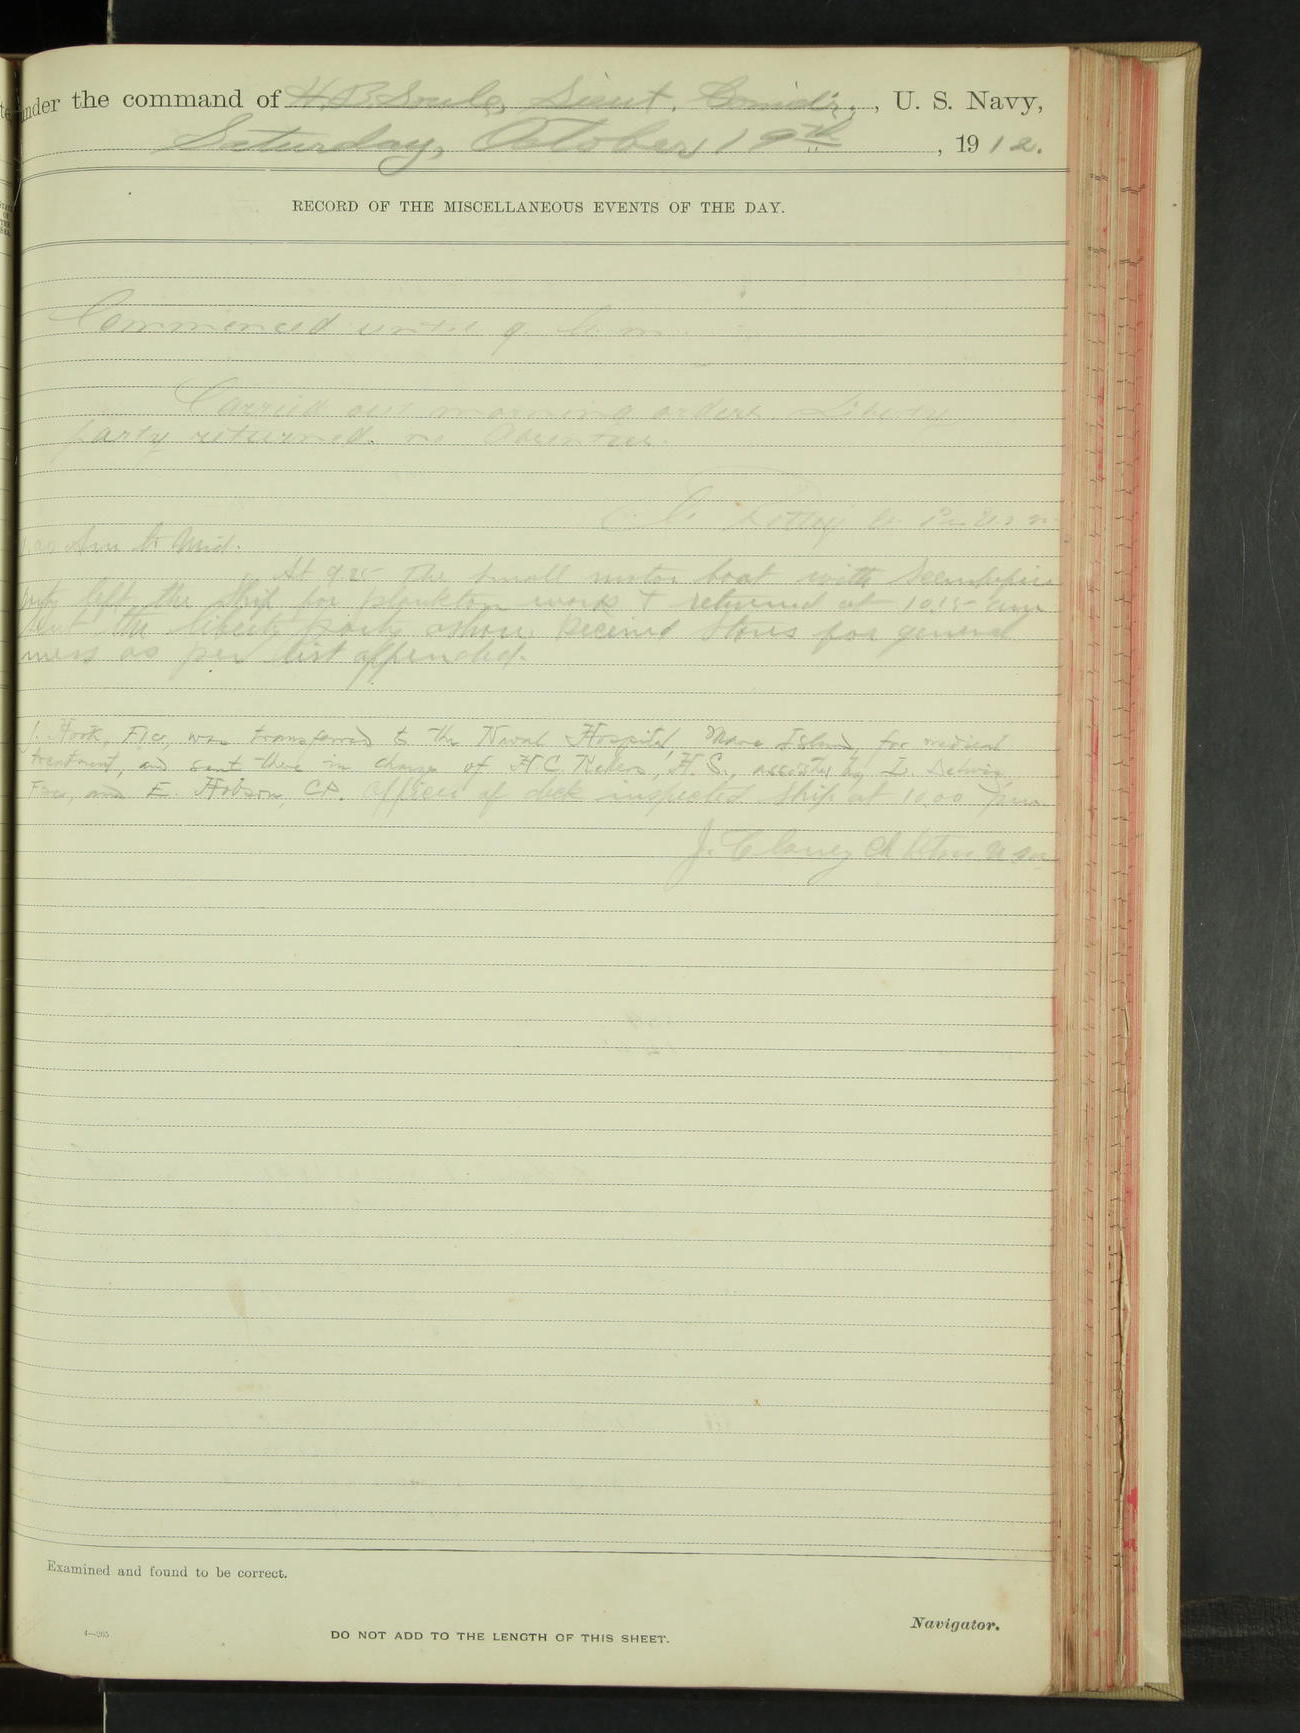 under the command of H. B. Soule, Lieut. Comdr., U. S. Navy,
Saturday, October 19th, 1912.
RECORD OF THE MISCELLANEOUS EVENTS OF THE DAY.
Commenced until 9 a. m.
Carried out morning orders. Liberty
party returned. no Absentees.
At 9.25 The small motor boat with Scientific
party left the ship for plankton work & returned at 10.15 am
Sent the liberty party ashore. Received Stores for general
mess as per list appended.
J. Hook, F1c, was transferred to the Naval Hospital, Mare Island, for medical
treatment, and sent there in charge of H. C. H. S., assisted by L.
and E. Hobson, CP. Officer of deck inspected ship at 10.00 pm
J. Clancy Ch
Examined and found to be correct.
Navigator.
4—265
DO NOT ADD TO THE LENGTH OF THIS SHEET.